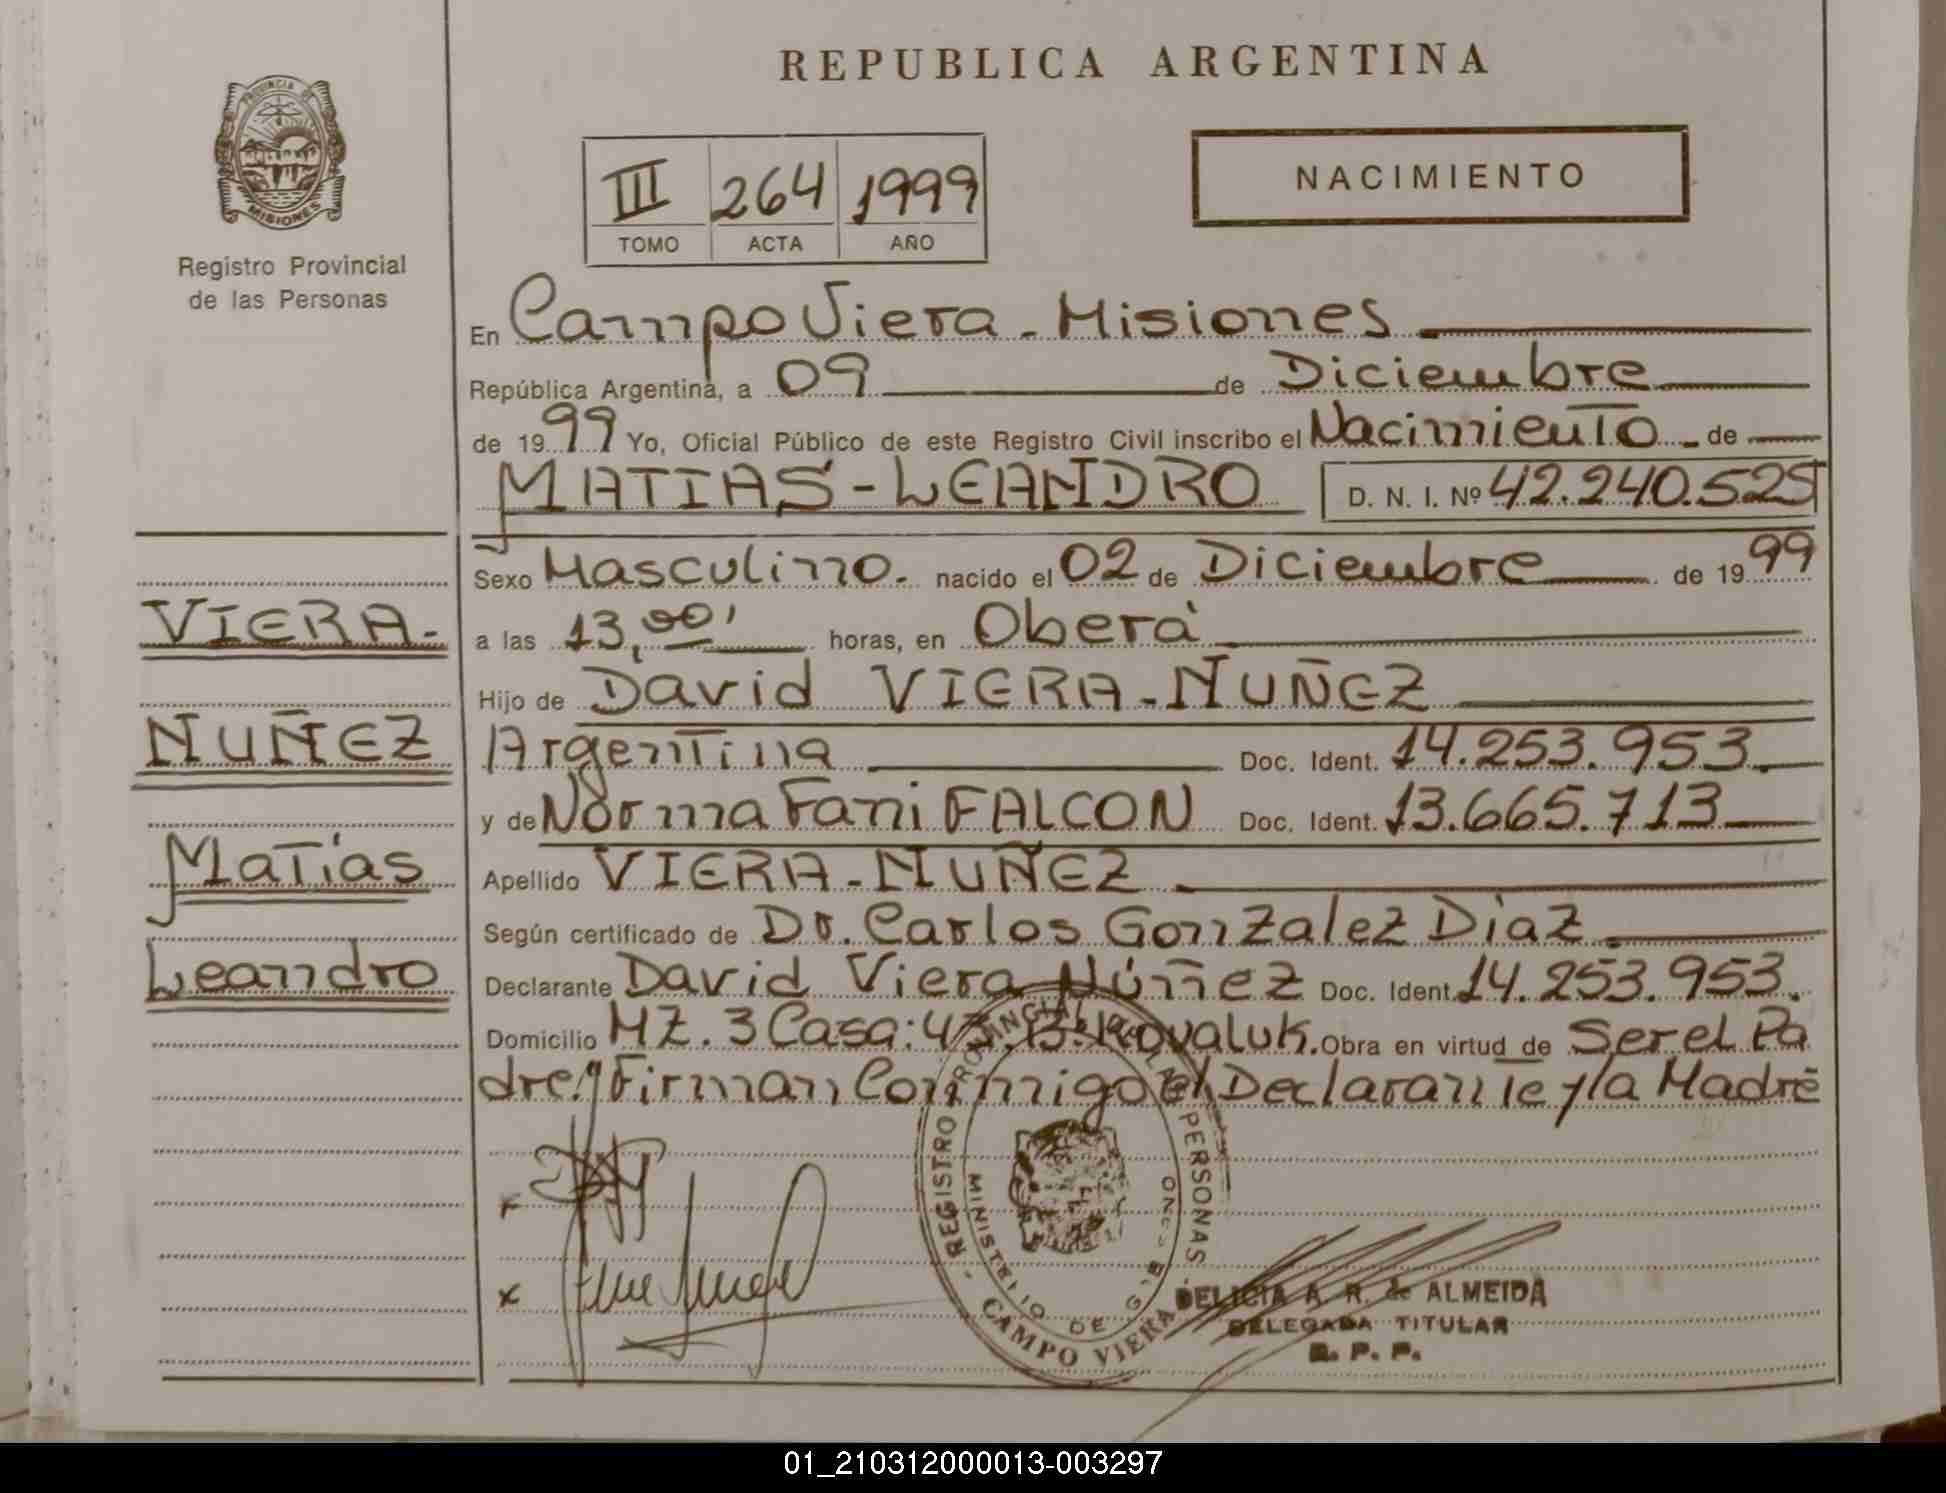 REPUBLICA ARGENTINA
PROVINCIA DE
MISIONES
Registro Provincial
de las Personas
III 264 1999
TOMO ACTA AÑO
NACIMIENTO
En Campo Viera - Misiones
República Argentina, a 09 de Diciembre
de 1999 Yo, Oficial Público de este Registro Civil inscribo el Nacimiento de
MATIAS-LEANDRO D. N. I. Nº 42.240.525
Sexo Masculino. nacido el 02 de Diciembre de 1999
a las 13,00' horas, en Oberá
Hijo de David VIERA-NUÑEZ
Argentina Doc. Ident. 14.253.953.
y de Norma Fani FALCON Doc. Ident. 13.665.713
Apellido VIERA-NUÑEZ
Según certificado de Dr. Carlos Gonzalez Diaz.
Declarante David Viera Núñez Doc. Ident. 14.253.953.
Domicilio MZ. 3 Casa: Kovaluk. Obra en virtud de Ser el Pa
dre. y Firman Conmigo el Declarante y la Madre
VIERA-
NUÑEZ
Matías
Leandro
x
x
REGISTRO PROVINCIAL DE LAS PERSONAS
MINISTERIO DE G
CAMPO VIERA
DELICIA A. R. de ALMEIDA
DELEGADA TITULAR
R. P. P.
01_210312000013-003297